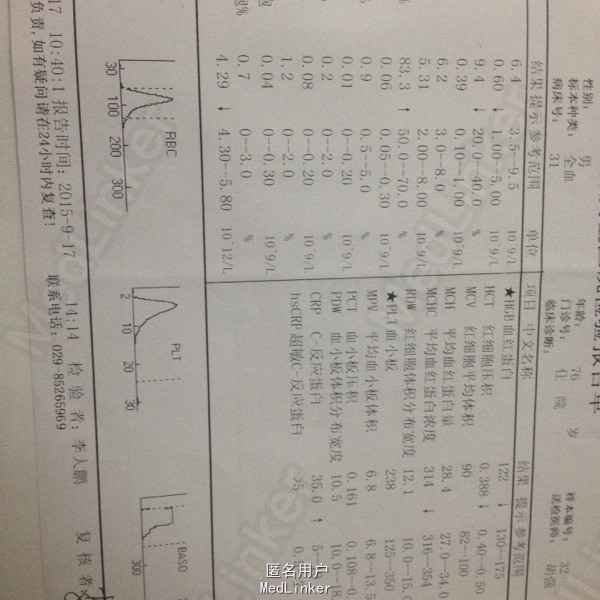 验报告单
性别: 男 年龄: 76 岁 样本编号: 32
标本种类: 全血 门诊号: 住 院 送检医师: 胡强
病床号: 31 临床诊断:
结果 提示 参考范围 单位 项目 中文名称 结果 提示 参考范围
6.4 3.5--9.5 10^9/L ★HGB 血红蛋白 122 ↓ 130--175
0.60 ↓ 1.00--5.00 10^9/L HCT 红细胞压积 0.388 ↓ 0.40--0.50
9.4 ↓ 20.0--40.0 % MCV 红细胞平均体积 90 82--100
0.39 0.10--1.00 10^9/L MCH 平均血红蛋白量 28.4 27.0--34.0
6.2 3.0--8.0 % MCHC 平均血红蛋白浓度 314 ↓ 316--354
5.31 2.00--8.00 10^9/L RDW 红细胞体积分布宽度 12.1 10.0--15.0
83.3 ↑ 50.0--70.0 % ★PLT 血小板 238 125--350
0.06 0.05--0.30 10^9/L MPV 平均血小板体积 6.8 6.8--13.5
0.9 0.5--5.0 % PCT 血小板压积 0.161 0.108--0.
0.01 0--0.20 10^9/L PDW 血小板体积分布宽度 10.5 10.0--18.
0.2 0--2.0 % CRP C-反应蛋白 35.0 ↑
0.08 0--0.20 10^9/L hsCRP 超敏C-反应蛋白 >5
1.2 0--2.0 %
0.04 0--0.30 10^9/L
0.7 0--3.0 %
4.29 ↓ 4.30--5.80 10^12/L
RBC PLT BASO
30 100 200 300 2 10 20 30 300
17 10:40:1 报告时间: 2015-9-17 14:14 检 验 者: 李人鹏 复 核 者
负责,如有疑问请在24小时内复查! 联系电话: 029-85265969
MedLinker
MedLinker
MedLinker
匿名用户
MedLinker